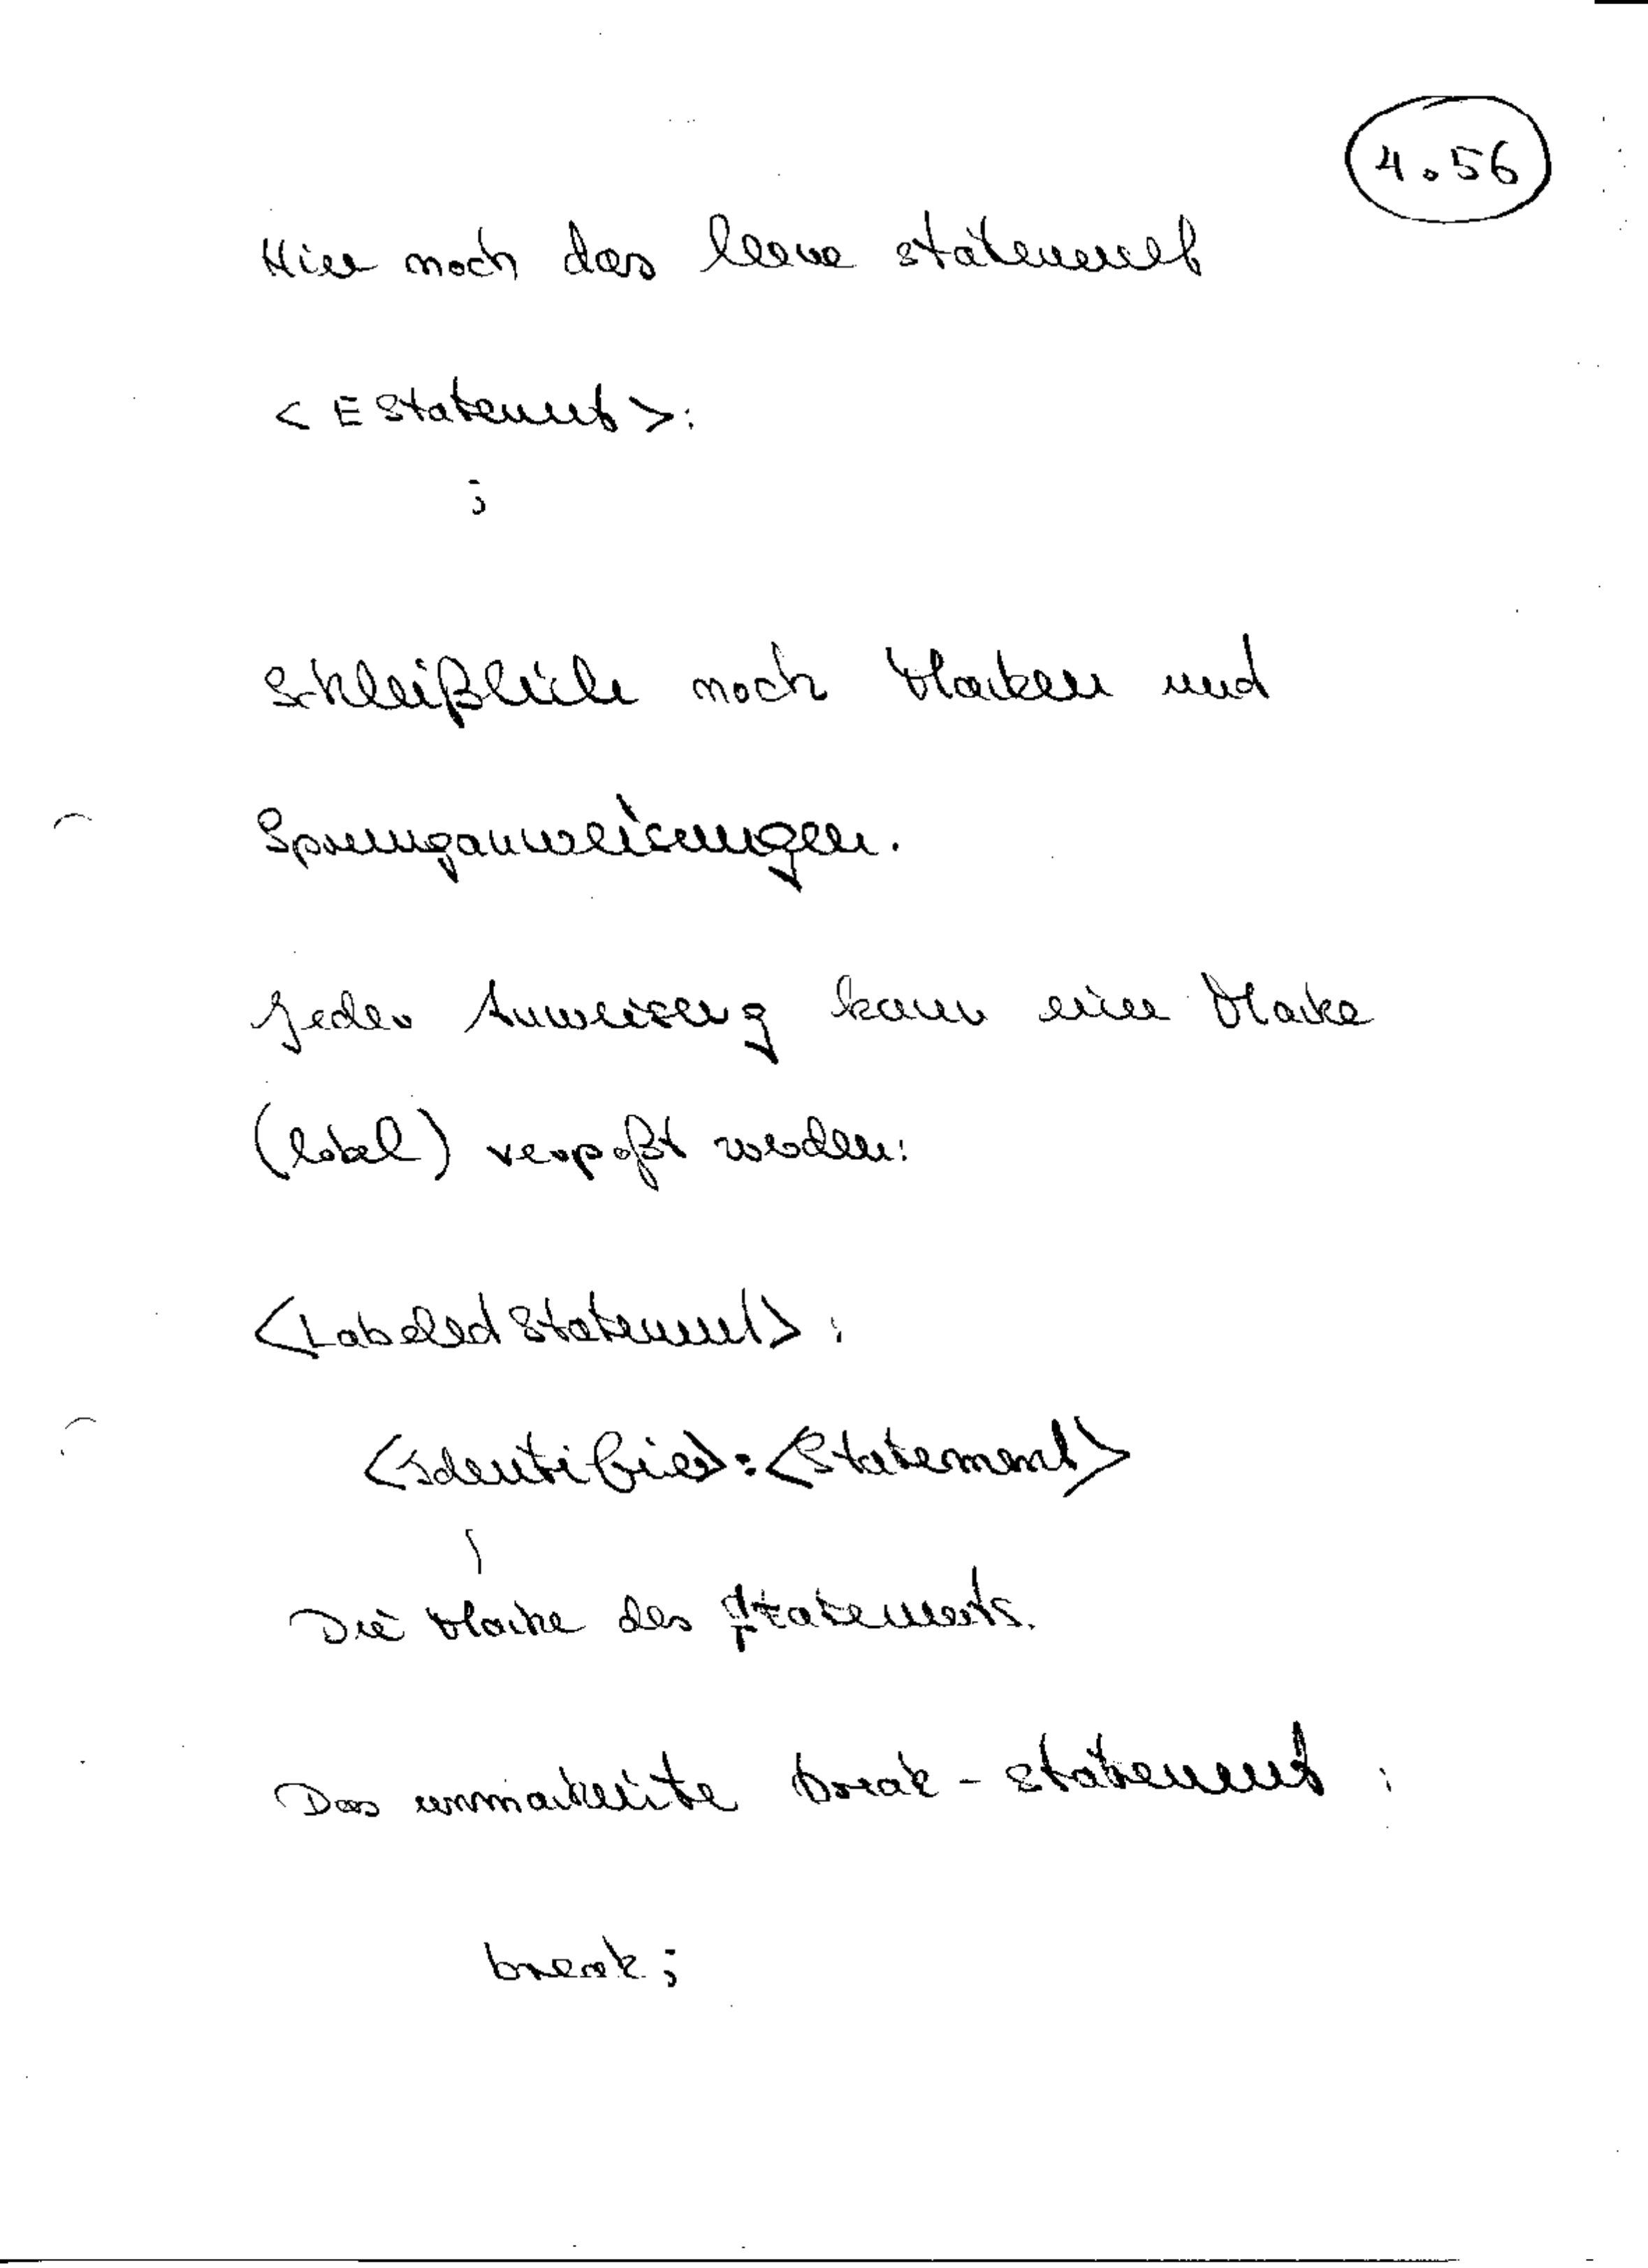 4.56
Hier noch das leere statement
<EStatement>:
;
Schleißlich noch Marken und
Sprunganweisungen.
Jeder Anweisung kann eine Marke
(label) verpaßt werden:
<LabeledStatement>:
<Identifier>:<Statement>
Die Marke des Statements.
Das unmarkierte break-statement:
break;